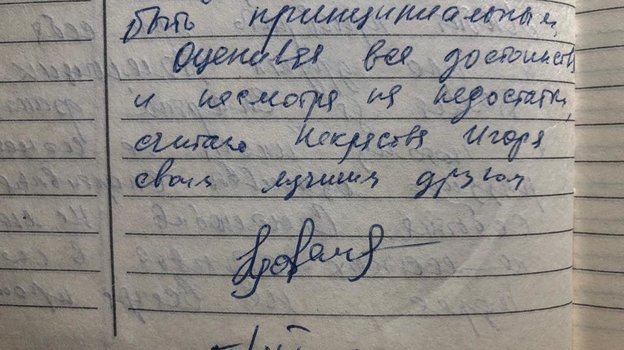 быть принципиальным,
Оценивая все достоинств
и несмотря на недостатки,
считаю Некрасова Игоря
своим лучшим другом